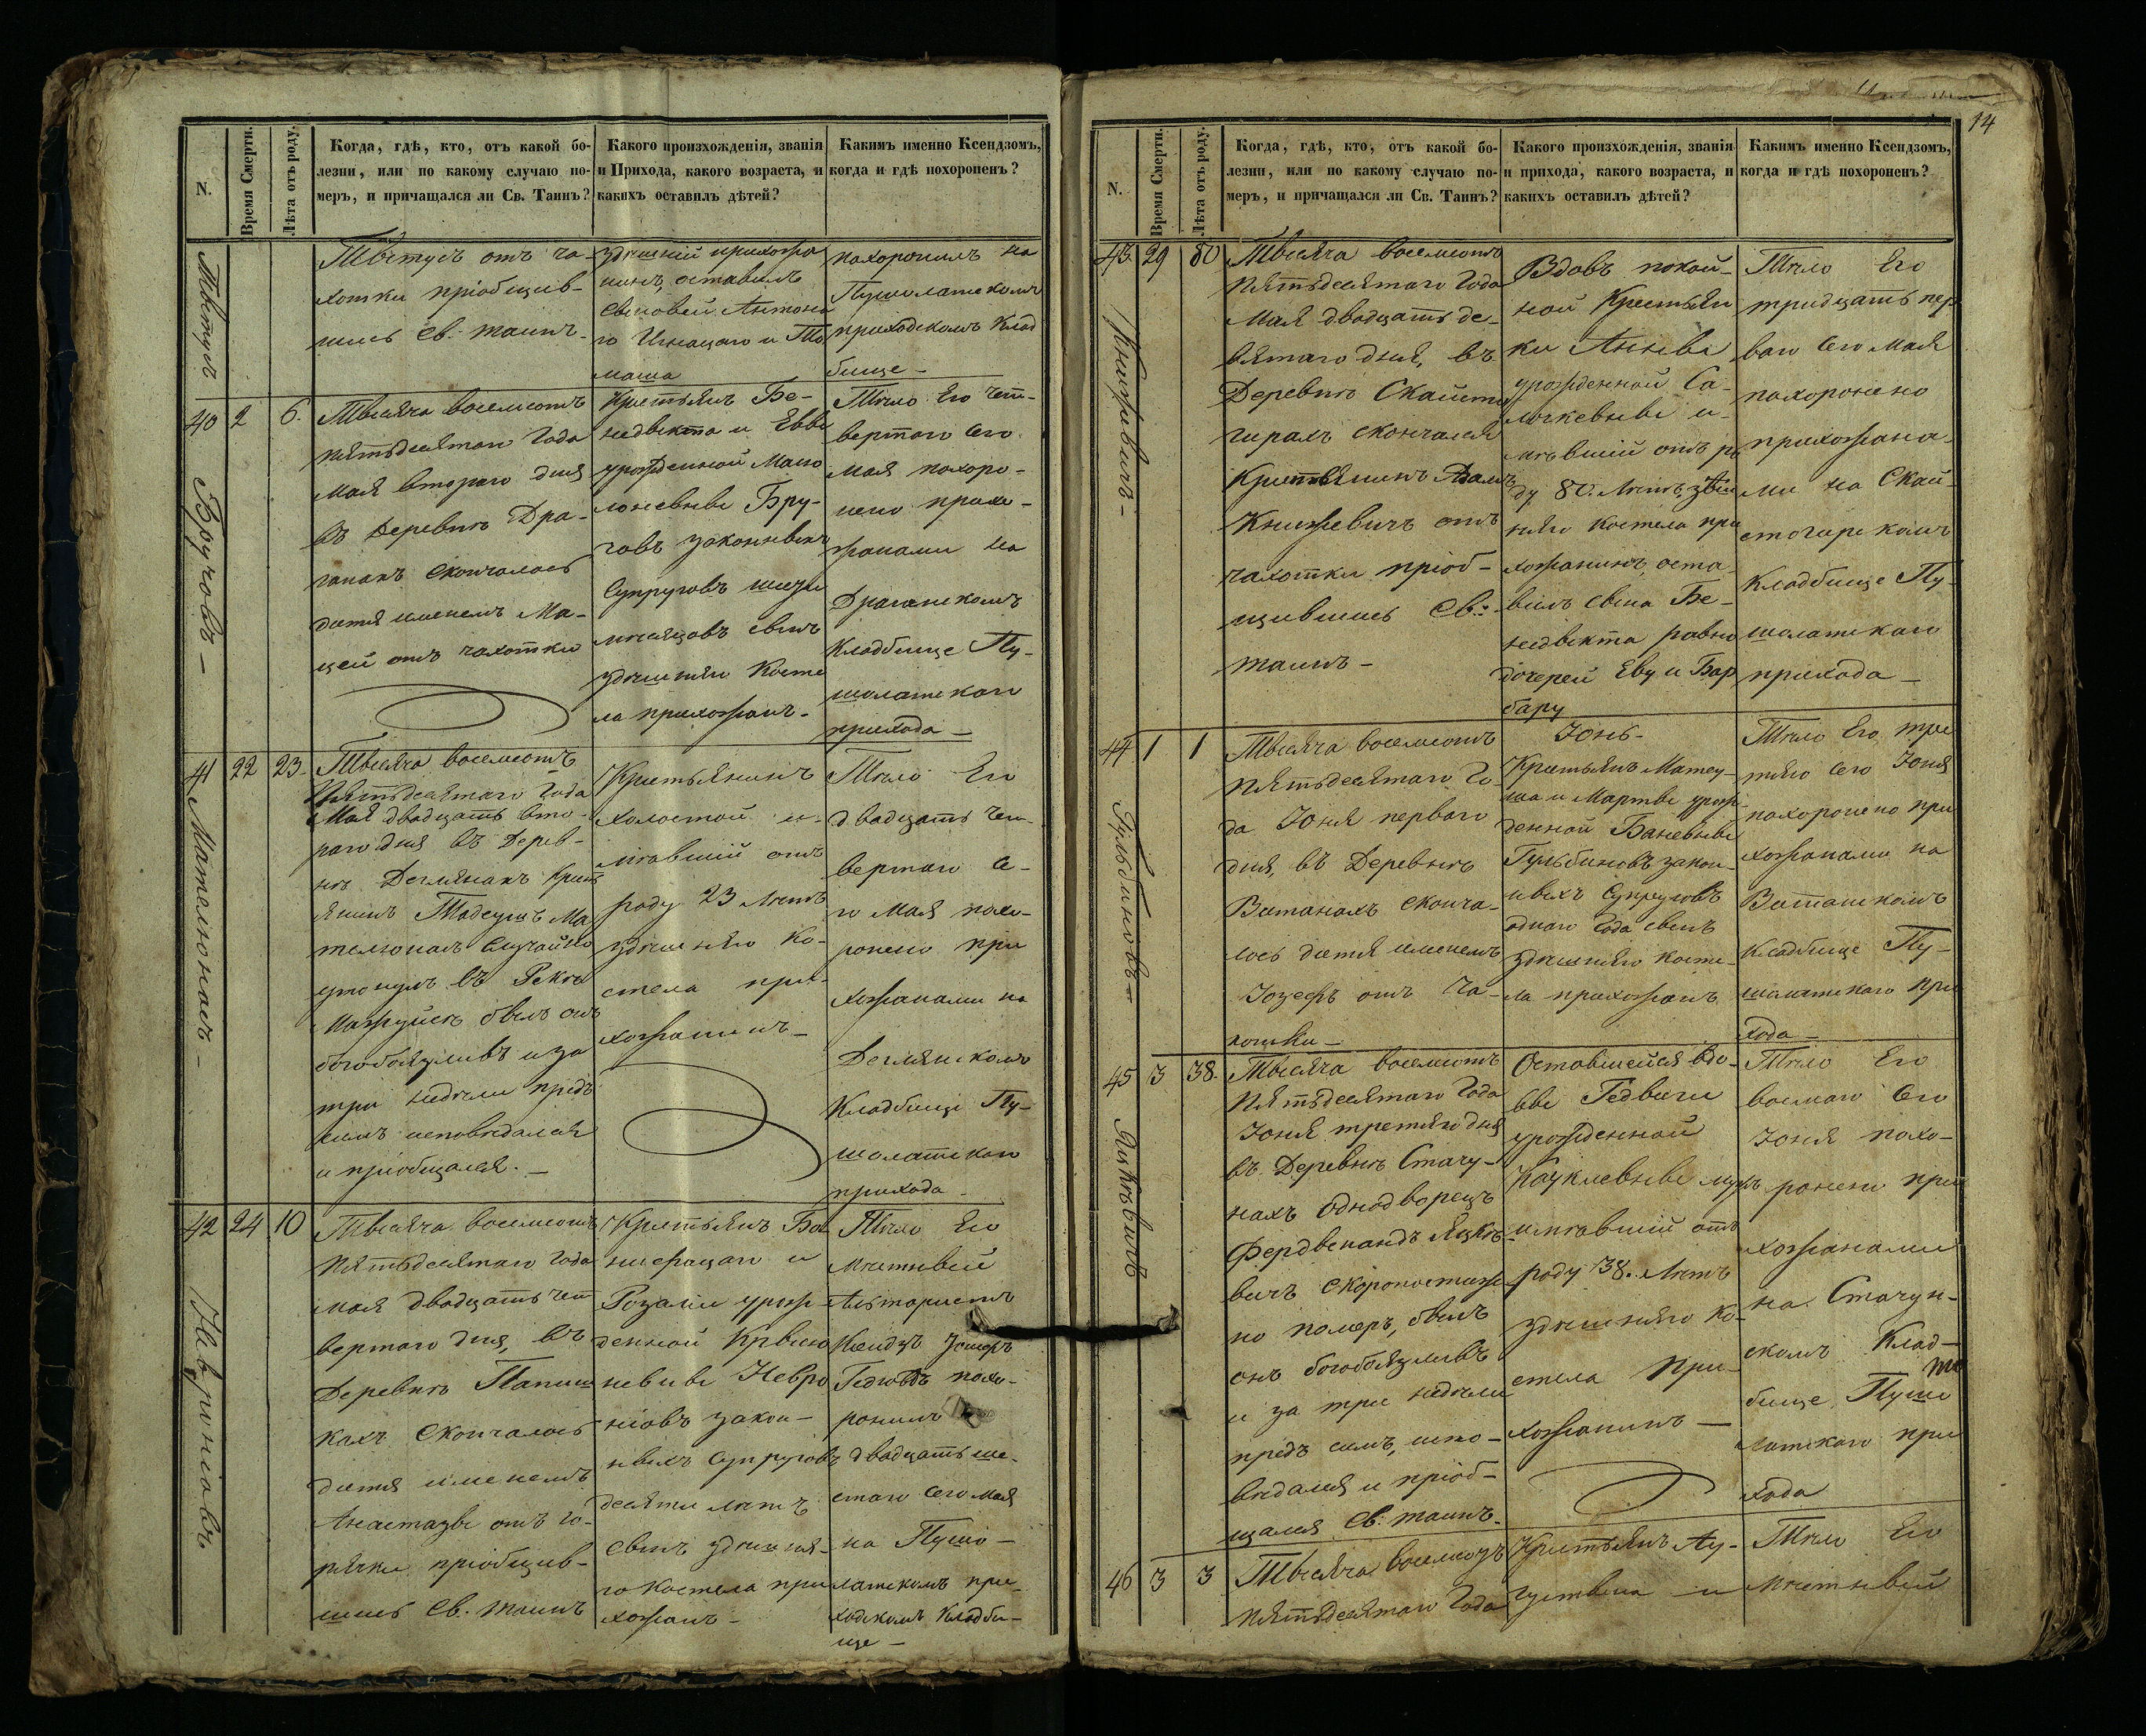 N.
Время Смерти.
Лѣта отъ роду.
Когда, гдѣ, кто, отъ какой бо-
лезни, или по какому случаю по-
меръ, и причащался ли Св. Таинъ?
Какого произхожденія, званія
и Прихода, какого возраста, и
какихъ оставилъ дѣтей?
Какимъ именно Ксендзомъ,
когда и гдѣ похороненъ?
отъ ча-
хотки пріобщив-
шись Св. таинъ.
здѣшній прихожа
нинъ, оставилъ
сыновей Антона
го Игнацаго и То
маша
похоронилъ на
Пушолатскомъ
приходскомъ Клад
бище-
40
Бручовъ -
2
6.
Тысяча восемсотъ
пятьдесятаго Года
Мая втораго дня
въ Деревнѣ Дра-
ганахъ скончалось
дитя именемъ Ма-
цей отъ чахотки
Крестьянъ Бе-
недыкта и Евы
урожденной Мано
лоневны Бру-
човъ законныхъ
Супруговъ шести
мѣсяцовъ сынъ
здѣшняго Косте
ла прихожанъ.
Тѣло Его чет-
вертаго сего
Мая похоро-
нено прихо-
жанами на
Драганскомъ
Кладбище Пу-
шолатскаго
прихода -
41
Мателюнасъ -
22
23.
Тысяча восемсотъ
Пятьдесятаго Года
Мая двадцать вто-
раго дня въ Дерев-
нѣ Деглянахъ Крест
янинъ Тадеушъ Ма
телюнасъ случайно
утонулъ въ Рекѣ
былъ онъ
богобоязливъ и за
три недѣли предъ
симъ исповѣдался
и пріобщался. -
Крестьянинъ
холостой и-
мѣвшій отъ
роду 23 лѣтъ
здѣшняго Ко-
стела при-
хожанинъ -
Тѣло Его
двадцать чет-
вертаго се-
го Мая похо-
ронено при
хожанами на
Деглянскомъ
Кладбище Пу-
шолатскаго
прихода -
42
Невроніовъ
24
10
Тысяча восемсотъ
Пятьдесятаго Года
Мая двадцать чет
вертаго дня, въ
Деревнѣ Папиш
кахъ скончалось
дитя именемъ
Анастазы отъ го-
рячки пріобщив-
шись Св. таинъ
Крестьянъ Бо
нифацаго и
Розаліи урож-
денной
Невро
ніовъ закон-
ныхъ Супруговъ
десяти лѣтъ
сынъ здѣшня-
го Костела при
хожанъ -
Тѣло Его
мѣстный
Альтаристъ
Ксендзъ Іосифъ
похо-
ронилъ
двадцать ше-
стаго сего мая
на Пушо-
латскомъ при-
ходскомъ Кладби-
ще -
14
N.
Время Смерти.
Лѣта отъ роду.
Когда, гдѣ, кто, отъ какой бо-
лезни, или по какому случаю по-
меръ, и причащался ли Св. Таинъ?
Какого произхожденія, званія
и прихода, какого возраста, и
какихъ оставилъ дѣтей?
Какимъ именно Ксендзомъ,
когда и гдѣ похороненъ?
43
Книжевичъ -
29
80
Тысяча восемсотъ
Пятьдесятаго Года
Мая двадцать де-
вятаго дня, въ
Деревнѣ Скайсто
гирахъ скончался
Крестьянинъ Адамъ
Книжевичъ отъ
чахотки пріоб-
щившись Св.
таинъ -
Вдовъ покой-
ной Крестьян
ки Анны
урожденной
и-
мѣвшій отъ ро
ду 80. лѣтъ, здѣш
няго Костела при
хожанинъ, оста-
вилъ сына Бе-
недыкта равно
дочерей Еву и Бар
бару
Тѣло Его
тридцать пер
ваго сего мая
похоронено
прихожана-
ми на Скай-
стогирскомъ
Кладбище Пу-
шолатскаго
прихода -
44
Гульбиновъ -
1
1
Тысяча восемсотъ
Пятьдесятаго Го-
да Юня перваго
дня, въ Деревнѣ
Витанахъ сконча-
лось дитя именемъ
Іозефъ отъ ча-
хотки -
Юнь-
Крестьянъ Матеу-
ша и Марты урож-
денной Баневны
Гульбиновъ закон-
ныхъ Супруговъ
однаго Года сынъ
здѣшняго Косте-
ла прихожанъ
Тѣло Его тре
тяго сего Юня
похоронено при
хожанами на
Витанскомъ
Кладбище Пу-
шолатскаго при
хода -
45
Яцкѣвичъ
3
38.
Тысяча восемсотъ
Пятьдесятаго Года
Юня третяго дня
въ Деревнѣ Стачу-
нахъ однодворецъ
Фердынандъ Яцкѣ-
вичъ скоропостиж
но померъ, былъ
онъ богобоязливъ
и за три недѣли
предъ симъ, испо-
вѣдался и пріоб-
щался Св. таинъ.
Оставшейся вдо-
вы Гедвиги
урожденной
Кауклевны мужъ
имѣвшій отъ
роду 38. лѣтъ
здѣшняго Ко-
стела При-
хожанинъ -
Тѣло Его
восмаго Сего
Юня похо-
ронено при
хожанами
на Стачун-
скомъ Клад-
бище Пушо
латскаго при
хода
46
3
3
Тысяча восемсотъ
Пятьдесятаго Года
Крестьянъ Ау-
густына и
Тѣло Его
мѣстный